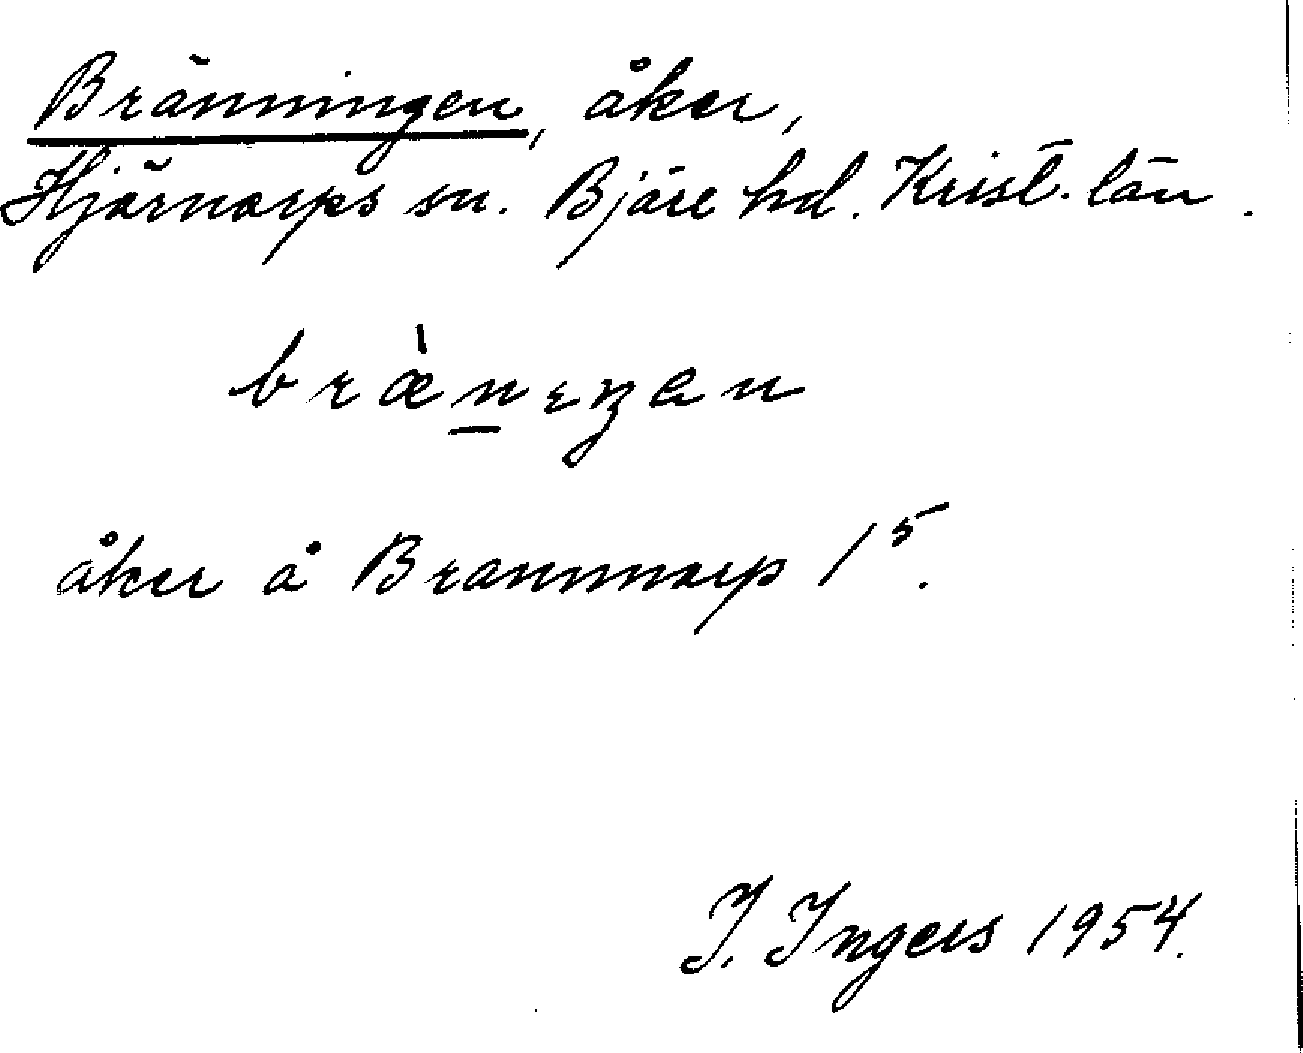 Bränningen, åker,
Hjärnarps sn. Bjäre hd. Krist. län.
bræ̀n̲ɛŋen
åker å Brannarp 1⁵.
I. Ingers 1954.